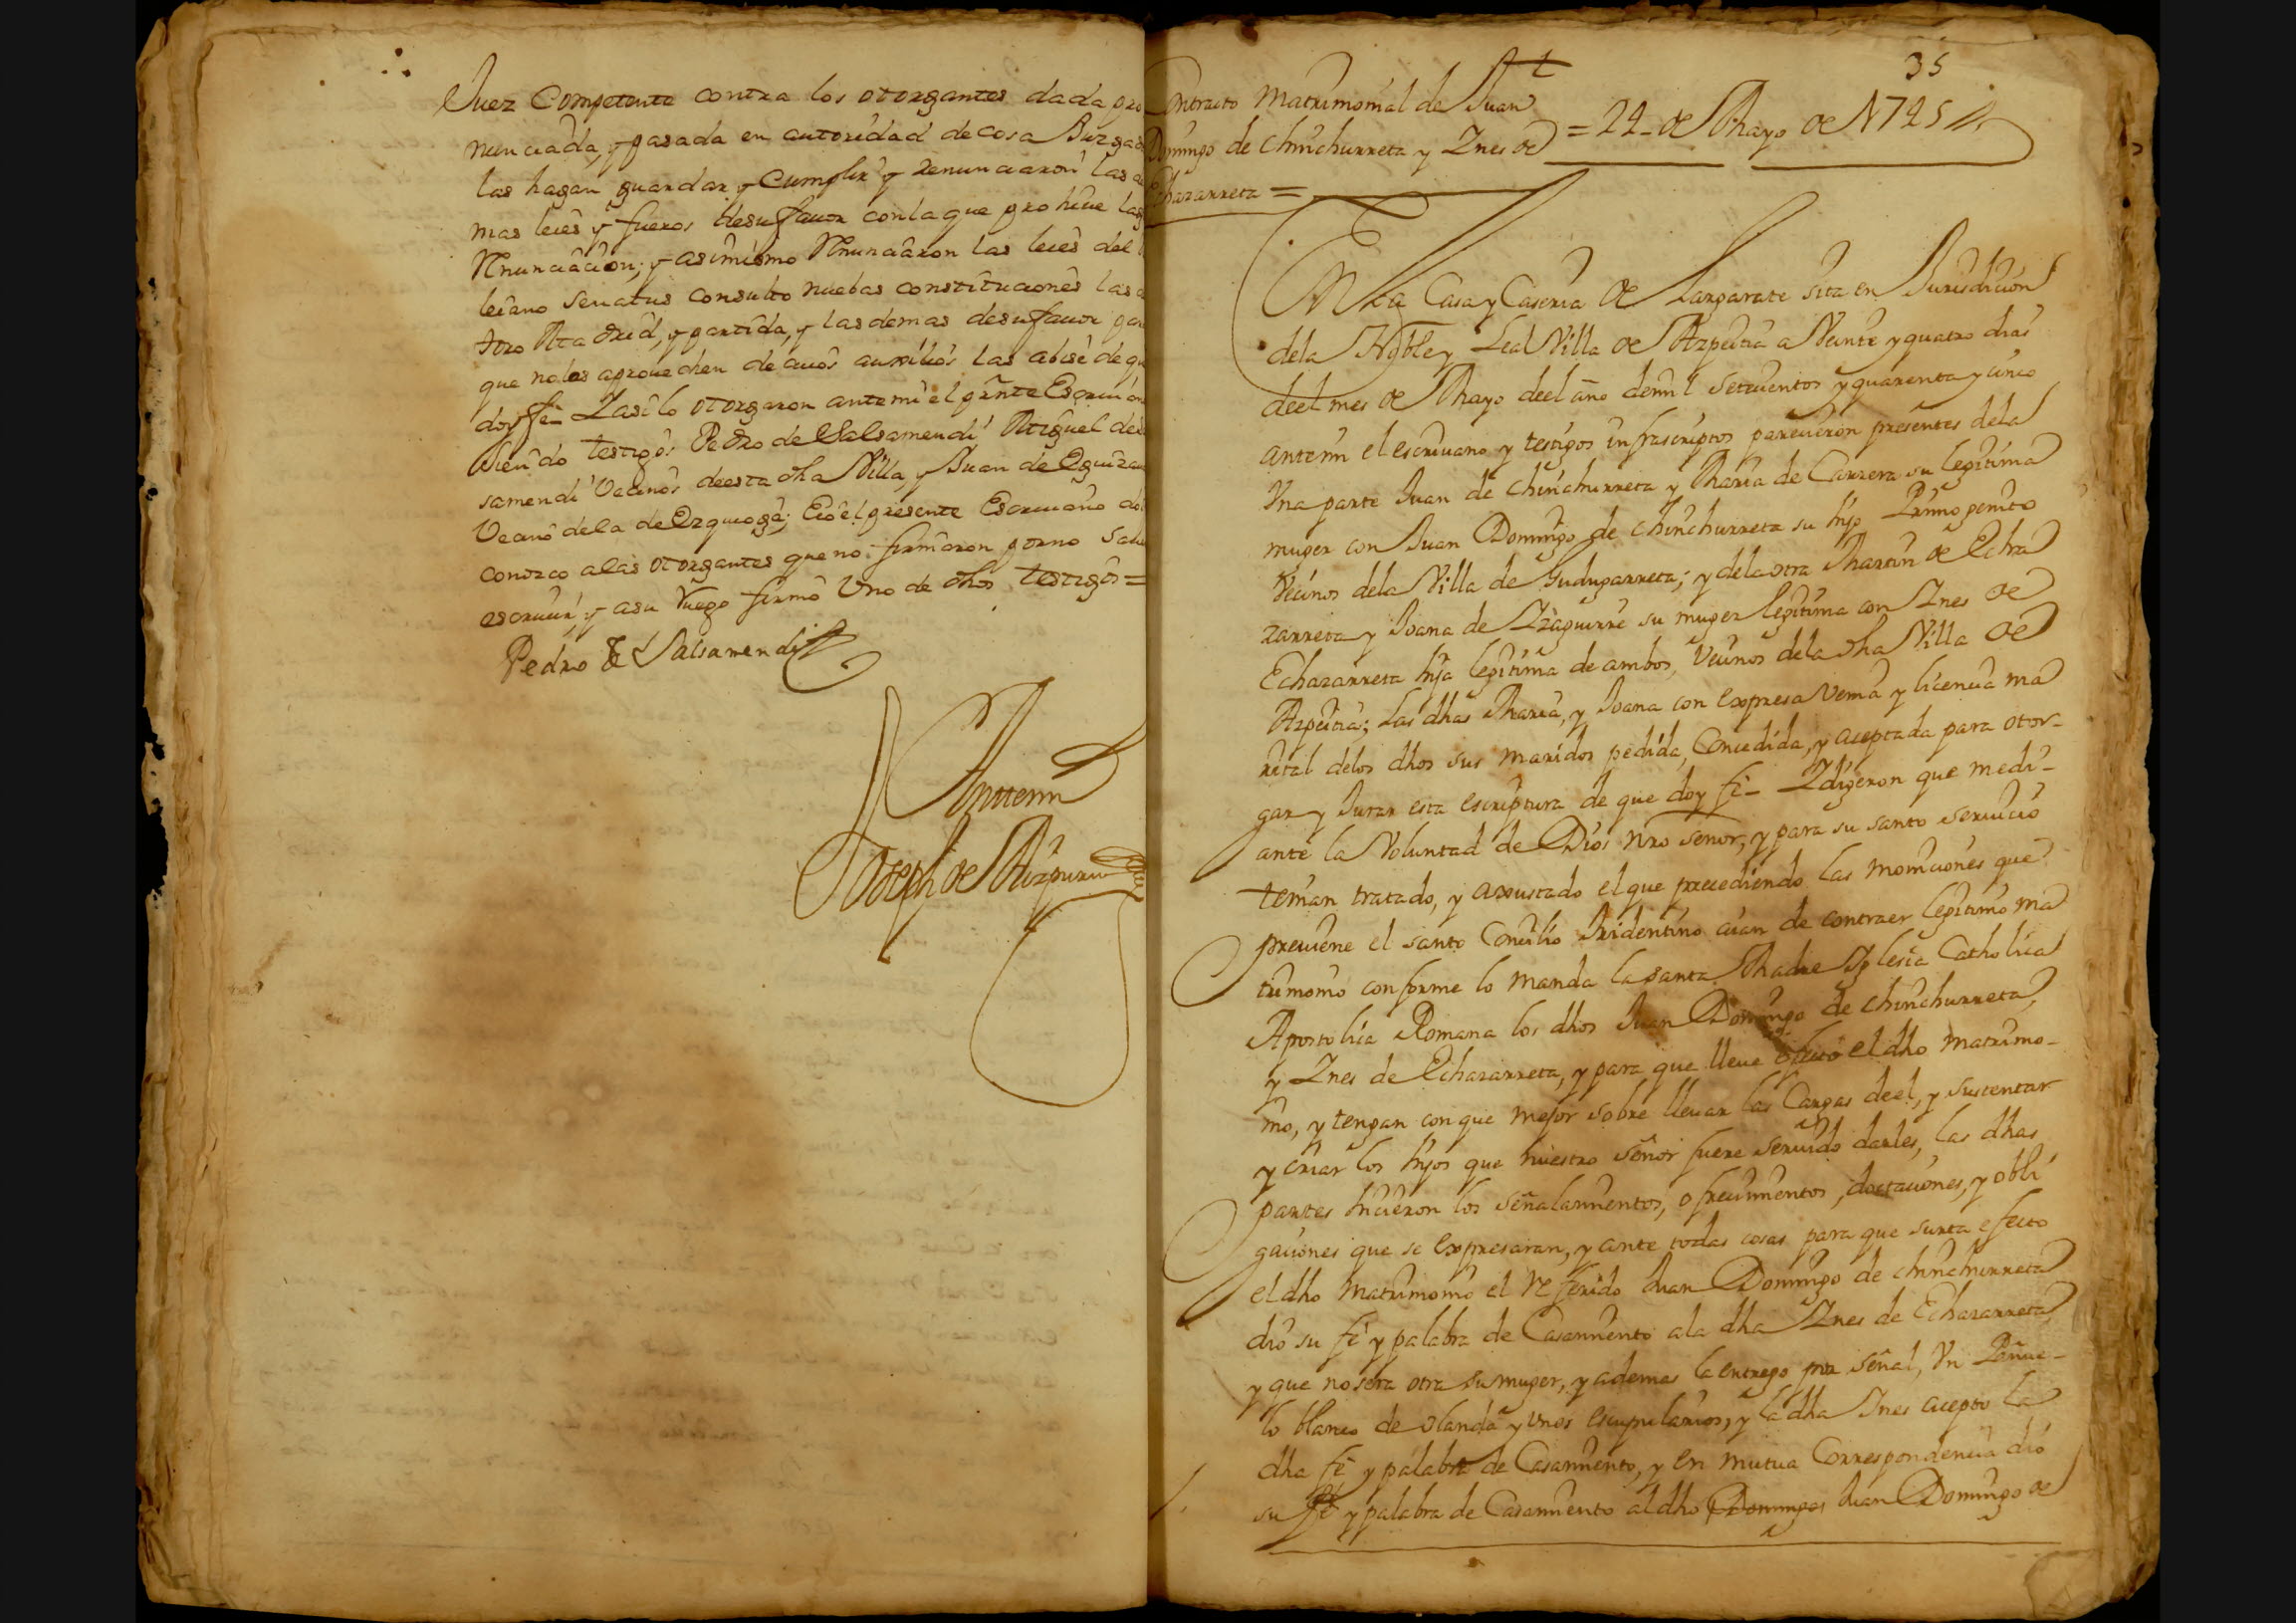 Juez Competente contra los otorgantes dada pro
nunciada, y pasada en autoridad de cosa Juzgad
las hagan guardar y Cumplir y renunciaron las
mas leies y fueros desufauor conla que prohiue las
Rnunciacion; y asimismo Rnunciaron las leies del
leiano Senatus consulto nuebas constituciones las
toro Madrid, y partida, y lasdemas desufauor par
que nolas aprouechen decuios auxilios las abise de qu
doyffe_ Iasilo otorgaron antemi el prnte Escriuano
Siendo testigos Pedro de Salsamendi Miguel de
samendi Vecinos deesta dha Villa, y Juan de Eguizau
Vecino dela de Ezquioga; Eio el presente Escriuano do
conozco alas otorgantes que no firmaron porno Saue
escriuir, y asu Ruego firmo Uno de dhos testigos =
Pedro de Salsamendi
Anttemi
Joseph de Aizpuru
35
Contracto Matrimonial de Juan
Domingo de Chinchurreta y Ines de = 24_ de Mayo de 1745
Echazarreta =
En la Casa y Caseria de Largarate sita en Jurisdicion
dela Noble y Leal Villa de Azpeitia a Veinte y quatro dias
deel mes de Mayo deel año demil setecientos y quarenta y cinco
antemi el escriuano y testigos infrascriptos parecieron presentes dela
Vna parte Juan de Chinchurreta y Maria de Carrera su legitima
muger con Juan Domingo de Chinchurreta su hijo Primogenito
Vecinos dela Villa de Gudugarreta; y dela otra Martin de Echa
zarreta y Joana de Izaguirre su muger legitima con Ines de
Echazarreta hija legitima de ambos, Vecinos dela dha Villa de
Azpeitia; las dhas Maria, y Joana con expresa Venia y licencia ma
rital delos dhos sus maridos pedida, Concedida, y aceptada para otor-
gar y Jurar esta escriptura de que doy fe_ Idigeron que medi-
ante la Voluntad de Dios nro señor, y para su santo seruicio
tenian tratado, y axustado elque precediendo las moniciones que
preuiene el santo Concilio Tridentino aian de contraer legitimo ma
trimonio conforme lo manda la santa Madre Yglesia Catholica
Apostolica Romana los dhos Juan Domingo de Chinchurreta,
y Ines de Echazarreta, y para que lleue efecto el dho matrimo-
nio, y tengan con que mejor sobre lleuar las Cargas deel, y sustentar
y criar los hijos que nuestro señor fuere seruido darles, las dhas
partes hicieron los señalamientos, ofrecimientos, doctaciones, y obli
gaciones que se expresaran, y ante todas cosas para que surta efecto
el dho matrimonio el Referido Juan Domingo de Chinchurreta
dio su fe y palabra de Casamiento ala dha Ines de Echazarreta
y que no sera otra su muger, y ademas la entrego por señal, Vn Pañue-
lo blanco de olanda y vnos escapularios, y la dha Ines acepto la
dha fe y palabra de Casamiento, y en mutua Correspondencia dio
su fe y palabra de Casamiento al dho Domingo Juan Domingo de